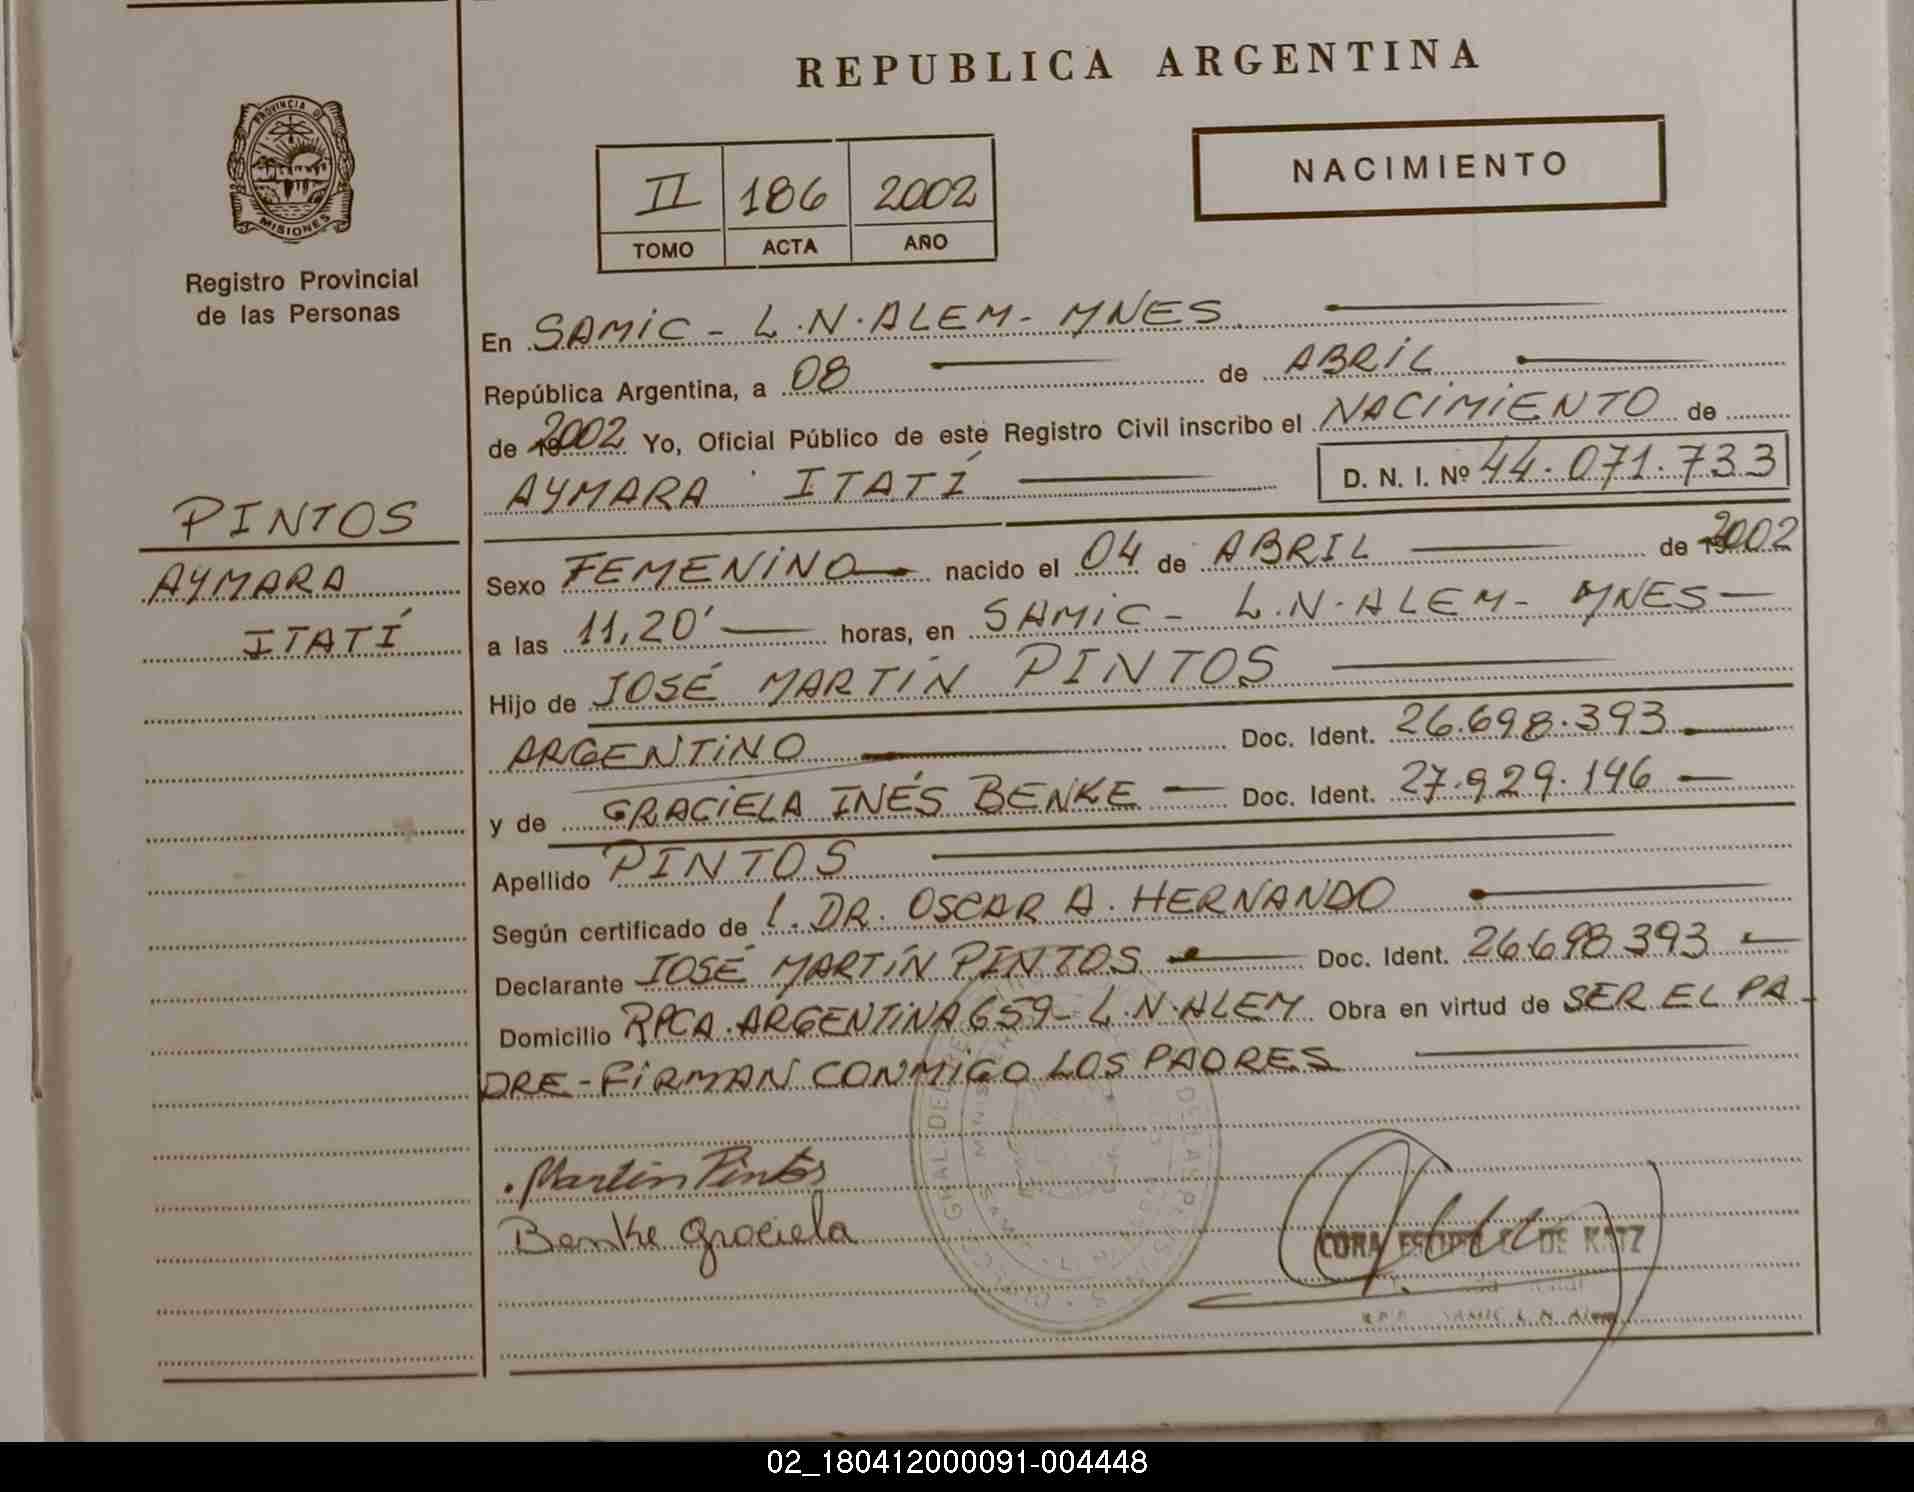 REPUBLICA ARGENTINA
PROVINCIA D
MISIONES
Registro Provincial
de las Personas
II 186 2002
TOMO ACTA AÑO
NACIMIENTO
En SAMIC - L.N.ALEM - MNES
República Argentina, a 08 de ABRIL
de 2002 Yo, Oficial Público de este Registro Civil inscribo el NACIMIENTO de
AYMARA ITATÍ D. N. I. Nº 44.071.733
PINTOS
AYMARA
ITATÍ
Sexo FEMENINO nacido el 04 de ABRIL de 2002
a las 11,20' horas, en SAMIC - L.N.ALEM - MNES
Hijo de JOSÉ MARTÍN PINTOS
ARGENTINO Doc. Ident. 26.698.393
y de GRACIELA INÉS BENKE Doc. Ident. 27.929.146
Apellido PINTOS
Según certificado de DR. OSCAR A. HERNANDO
Declarante JOSÉ MARTÍN PINTOS Doc. Ident. 26.698.393
Domicilio RPCA. ARGENTINA 659 - L.N.ALEM Obra en virtud de SER EL PA-
DRE - FIRMAN CONMIGO LOS PADRES
Martin Pintos
Benke Graciela
DE KATZ
SAMIC L. N. Alem
02_180412000091-004448